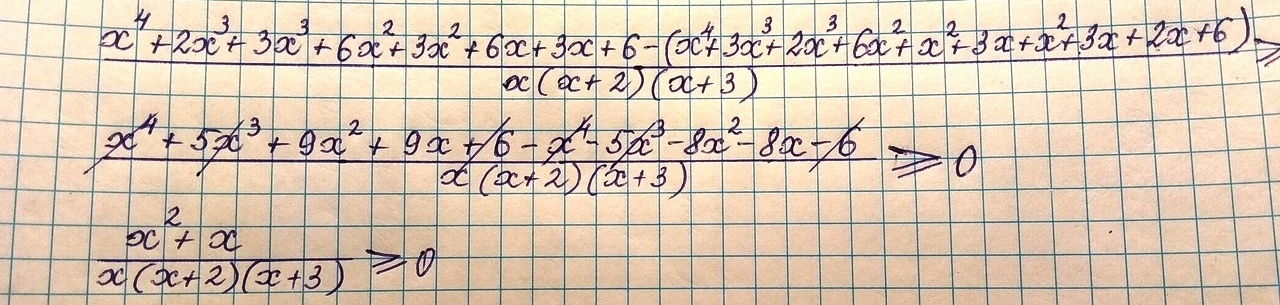 x⁴+2x³+3x³+6x²+3x²+6x+3x+6-(x⁴+3x³+2x³+6x²+x²+3x+x²+3x+2x+6) ≥
x(x+2)(x+3)
x⁴+5x³+9x²+9x+6-x⁴-5x³-8x²-8x-6 ≥ 0
x(x+2)(x+3)
x²+x ≥ 0
x(x+2)(x+3)